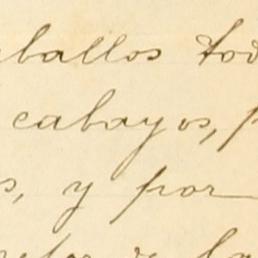 aballos tod
cabayos, p
s, y por